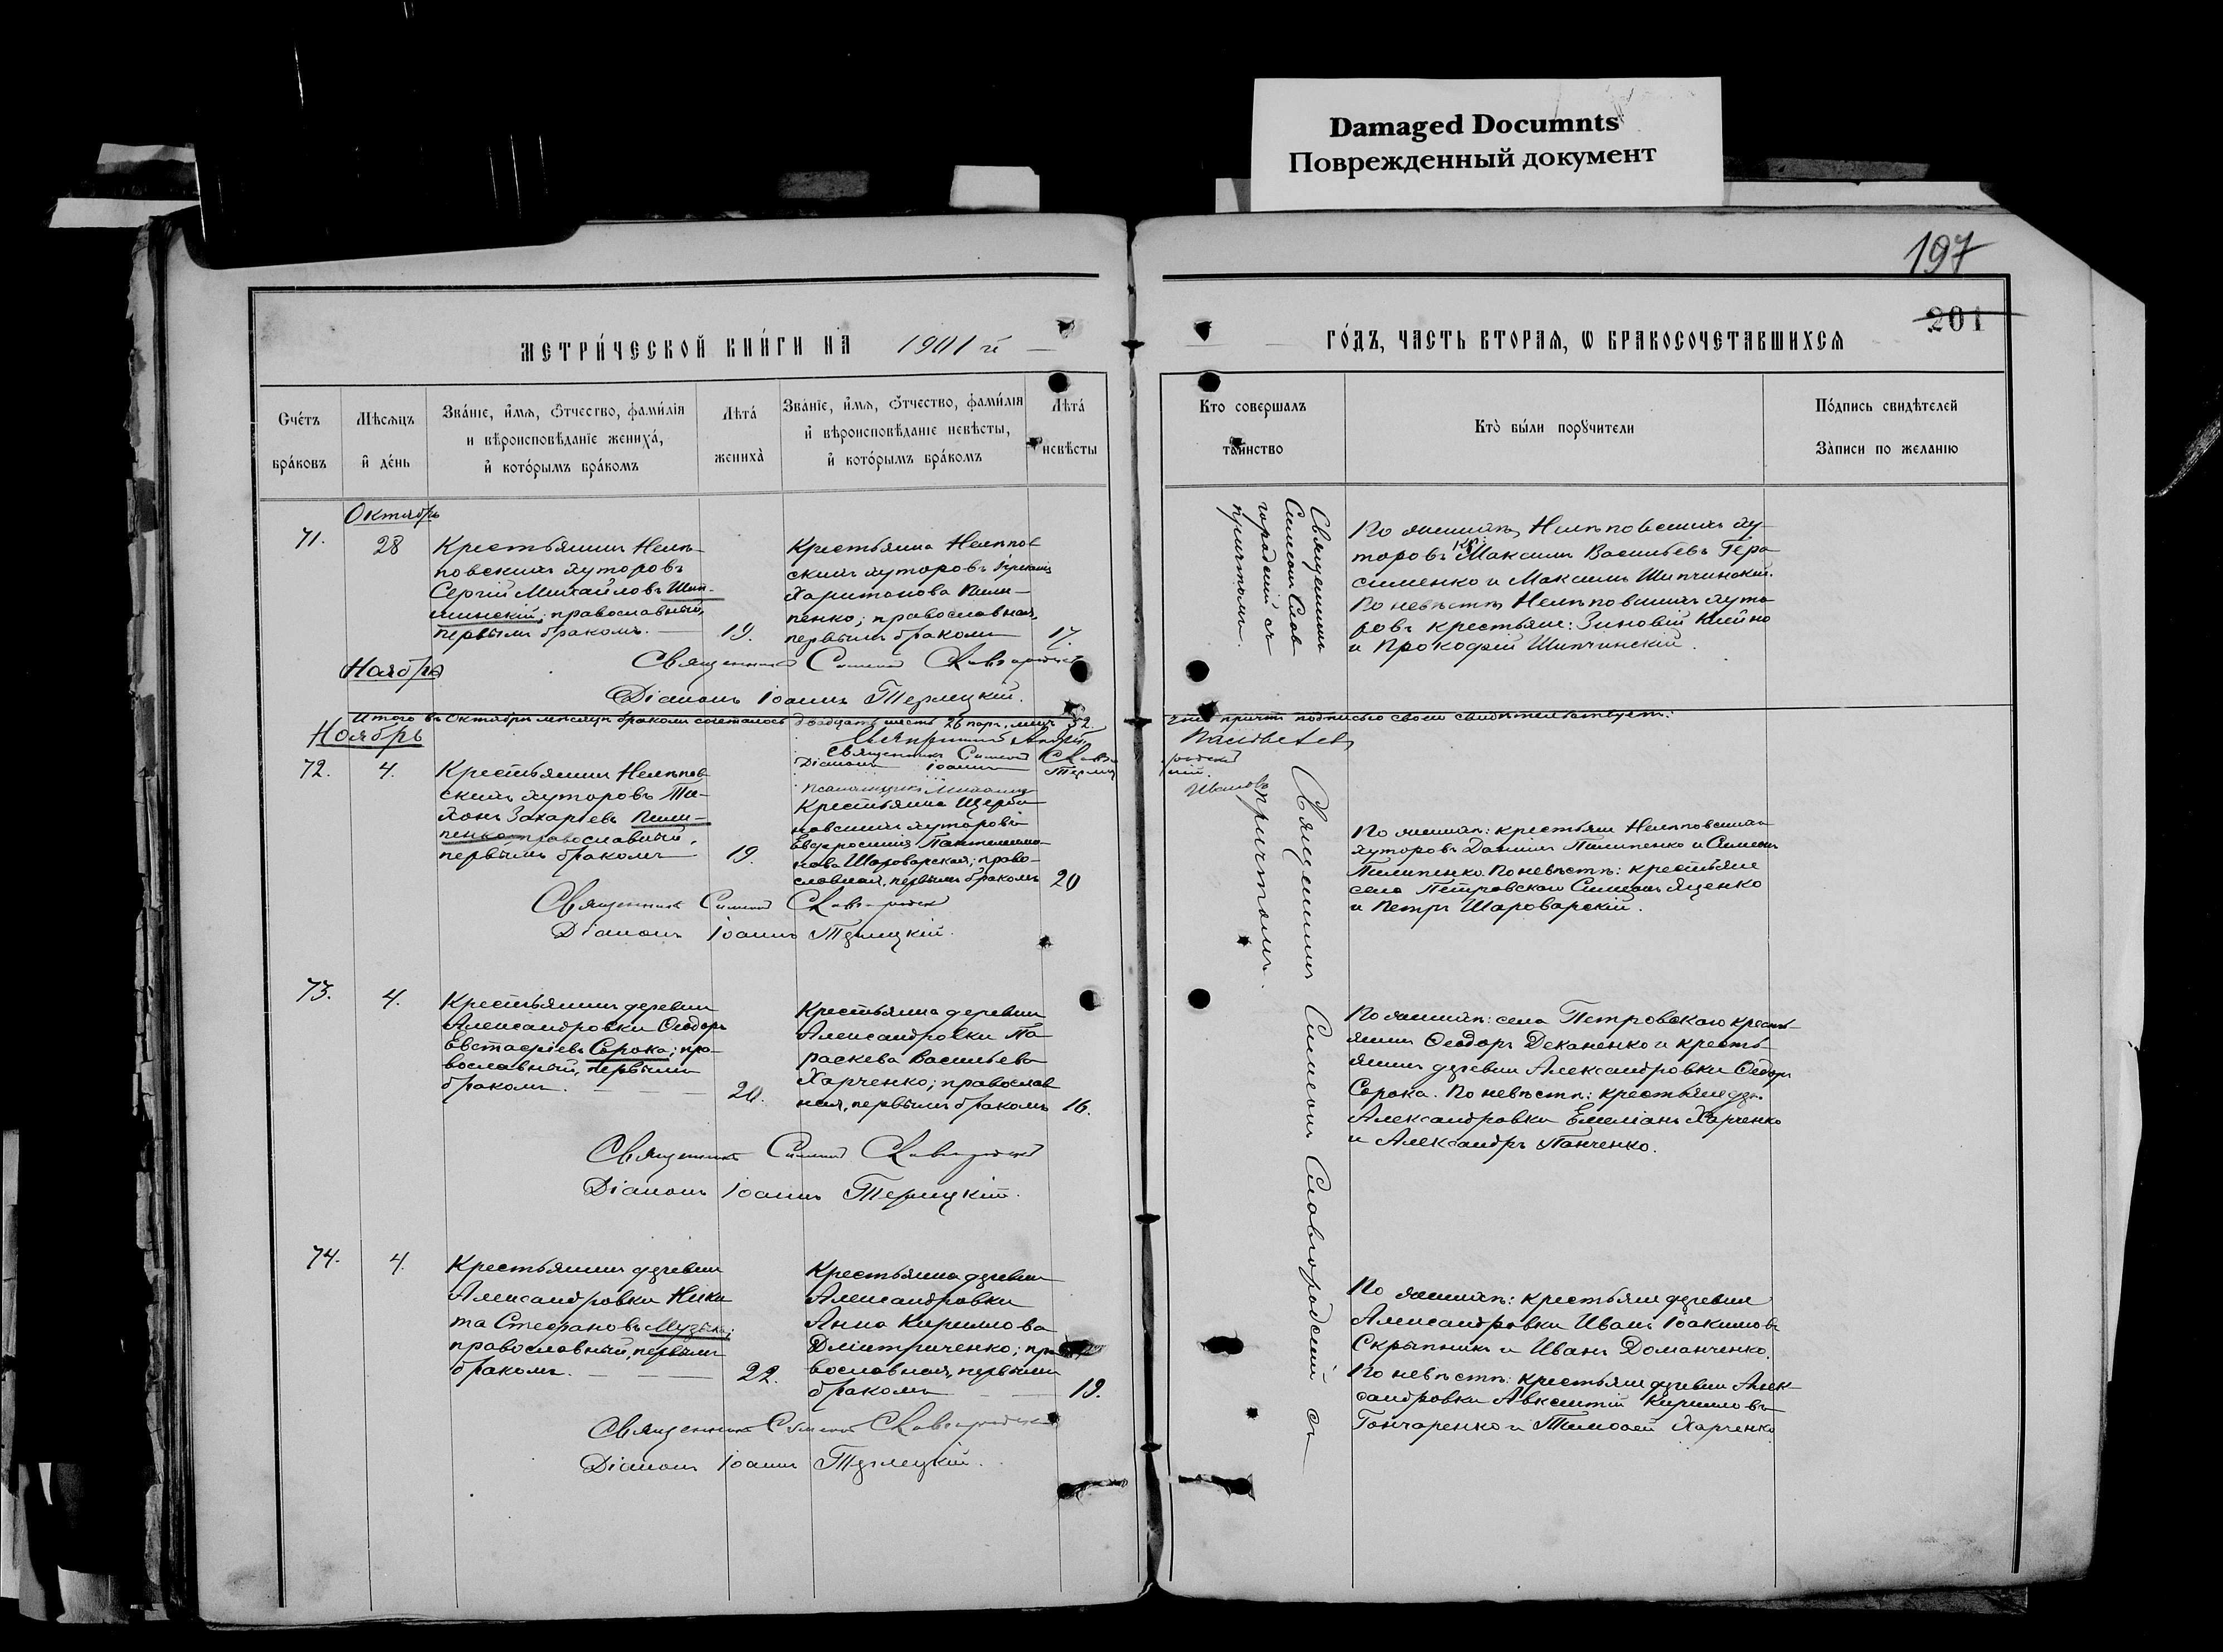 Damaged Documnts
Поврежденный документ
197
201
МЕТРИ́ЧЕСКОЙ КНИ́ГИ НА 1901 й
ГО́ДЪ, ЧАСТЬ ВТОРАЯ, Ѡ БРАКОСОЧЕТАВШИХСЯ
Сче́тъ бра́ковъ
Мѣсяцъ и҆ де́нь
Зва́нїе, и҆́мя, ѻ҆́тчество, фами́лїя
и вѣроисповѣданїе жениха́,
и҆ кото́рымъ бра́комъ
Лѣта́ жениха̀
Зва́нїе, и҆́мя, ѻ҆́тчество, фами́лїя
и҆ вѣроисповѣданїе невѣсты,
и҆ кото́рымъ бра́комъ
Лѣта́ невѣсты
Кто совершалъ
таинство
Кто̀ бы́ли порꙋчители
По́дпись свидѣтелей
За̀писи по желанїю
Октябрь
71.
28
Крестьянинъ Нелѣ-
повскихъ хуторовъ
Сергій Михайловъ Шип-
чинскій; православный,
первымъ бракомъ.
19.
Крестьянка Нелѣпов
скихъ хуторовъ
Харитонова Пили-
пенко; православная,
первымъ бракомъ
17.
Священникъ
Симеонъ Слав
городскій съ
причтомъ.
По женихѣ, Нелѣповскихъ ху-
торовъ кр: Максимъ Васильевъ Гера
сименко и Максимъ Шипчинскій.
По невѣстѣ Нелѣповскихъ хуто
ровъ крестьяне: Зиновій
и Прокофій Шипчинскій.
Священникъ Симеонъ Славгородскій
Діаконъ Іоаннъ Терлецкій.
Ноябрь
Итого въ Октябрѣ мѣсяцѣ бракомъ сочеталось двадцать шесть 26 паръ, лицъ 52.
что причтъ подписью своею свидѣтельствуетъ:
Священникъ Симеонъ Славго
родскій
Діаконъ Іоаннъ Терлец
кій.
Псаломщикъ
Ивановъ
Ноябрь
72.
4.
Крестьянинъ Нелѣпов
скихъ хуторовъ Ти-
хонъ Захаріевъ Пили-
пенко православный,
первымъ бракомъ
19.
Крестьянка Щерби
новскихъ хуторовъ
Евфросинія Пантелеимо-
нова Шароварская; право-
славная, первымъ бракомъ
20
Священникъ Симеонъ Славгородскій съ
причтомъ.
По женихѣ: крестьяне Нелѣповскихъ
хуторовъ Даніилъ Пилипенко и Симеонъ
Пилипенко. По невѣстѣ: крестьяне
села Петровскаго Симеонъ Яценко
и Петръ Шароварскій.
Священникъ Симеонъ Славгородскій
Діаконъ Іоаннъ Терлецкій.
73.
4.
Крестьянинъ деревни
Александровки Ѳеодоръ
Евстафіевъ Сорока; пра-
вославный, первымъ
бракомъ.
20.
Крестьянка деревни
Александровки Па-
раскева Васильева
Харченко; православ
ная, первымъ бракомъ
16.
По женихѣ: села Петровскаго кресть-
янинъ Ѳеодоръ Деканенко и кресть-
янинъ деревни Александровки Ѳеодоръ
Сорока. По невѣстѣ: крестьяне дер.
Александровки Емеліанъ Харченко
и Александръ Панченко.
Священникъ Симеонъ Славгородскій
Діаконъ Іоаннъ Терлецкій.
74.
4.
Крестьянинъ деревни
Александровки Ники
та Стефановъ Музыка;
православный, первымъ
бракомъ.
22.
Крестьянка деревни
Александровки
Анна Кириллова
Дмитриченко; пра
вославная, первымъ
бракомъ
19.
По женихѣ: крестьяне деревни
Александровки Иванъ Іоакимовъ
Скрыпникъ и Иванъ Доманченко.
По невѣстѣ: крестьяне деревни Алек
сандровки Авксентій Кирилловъ
Гончаренко и Тимоѳей Харченко
Священникъ Симеонъ Славгородскій
Діаконъ Іоаннъ Терлецкій.